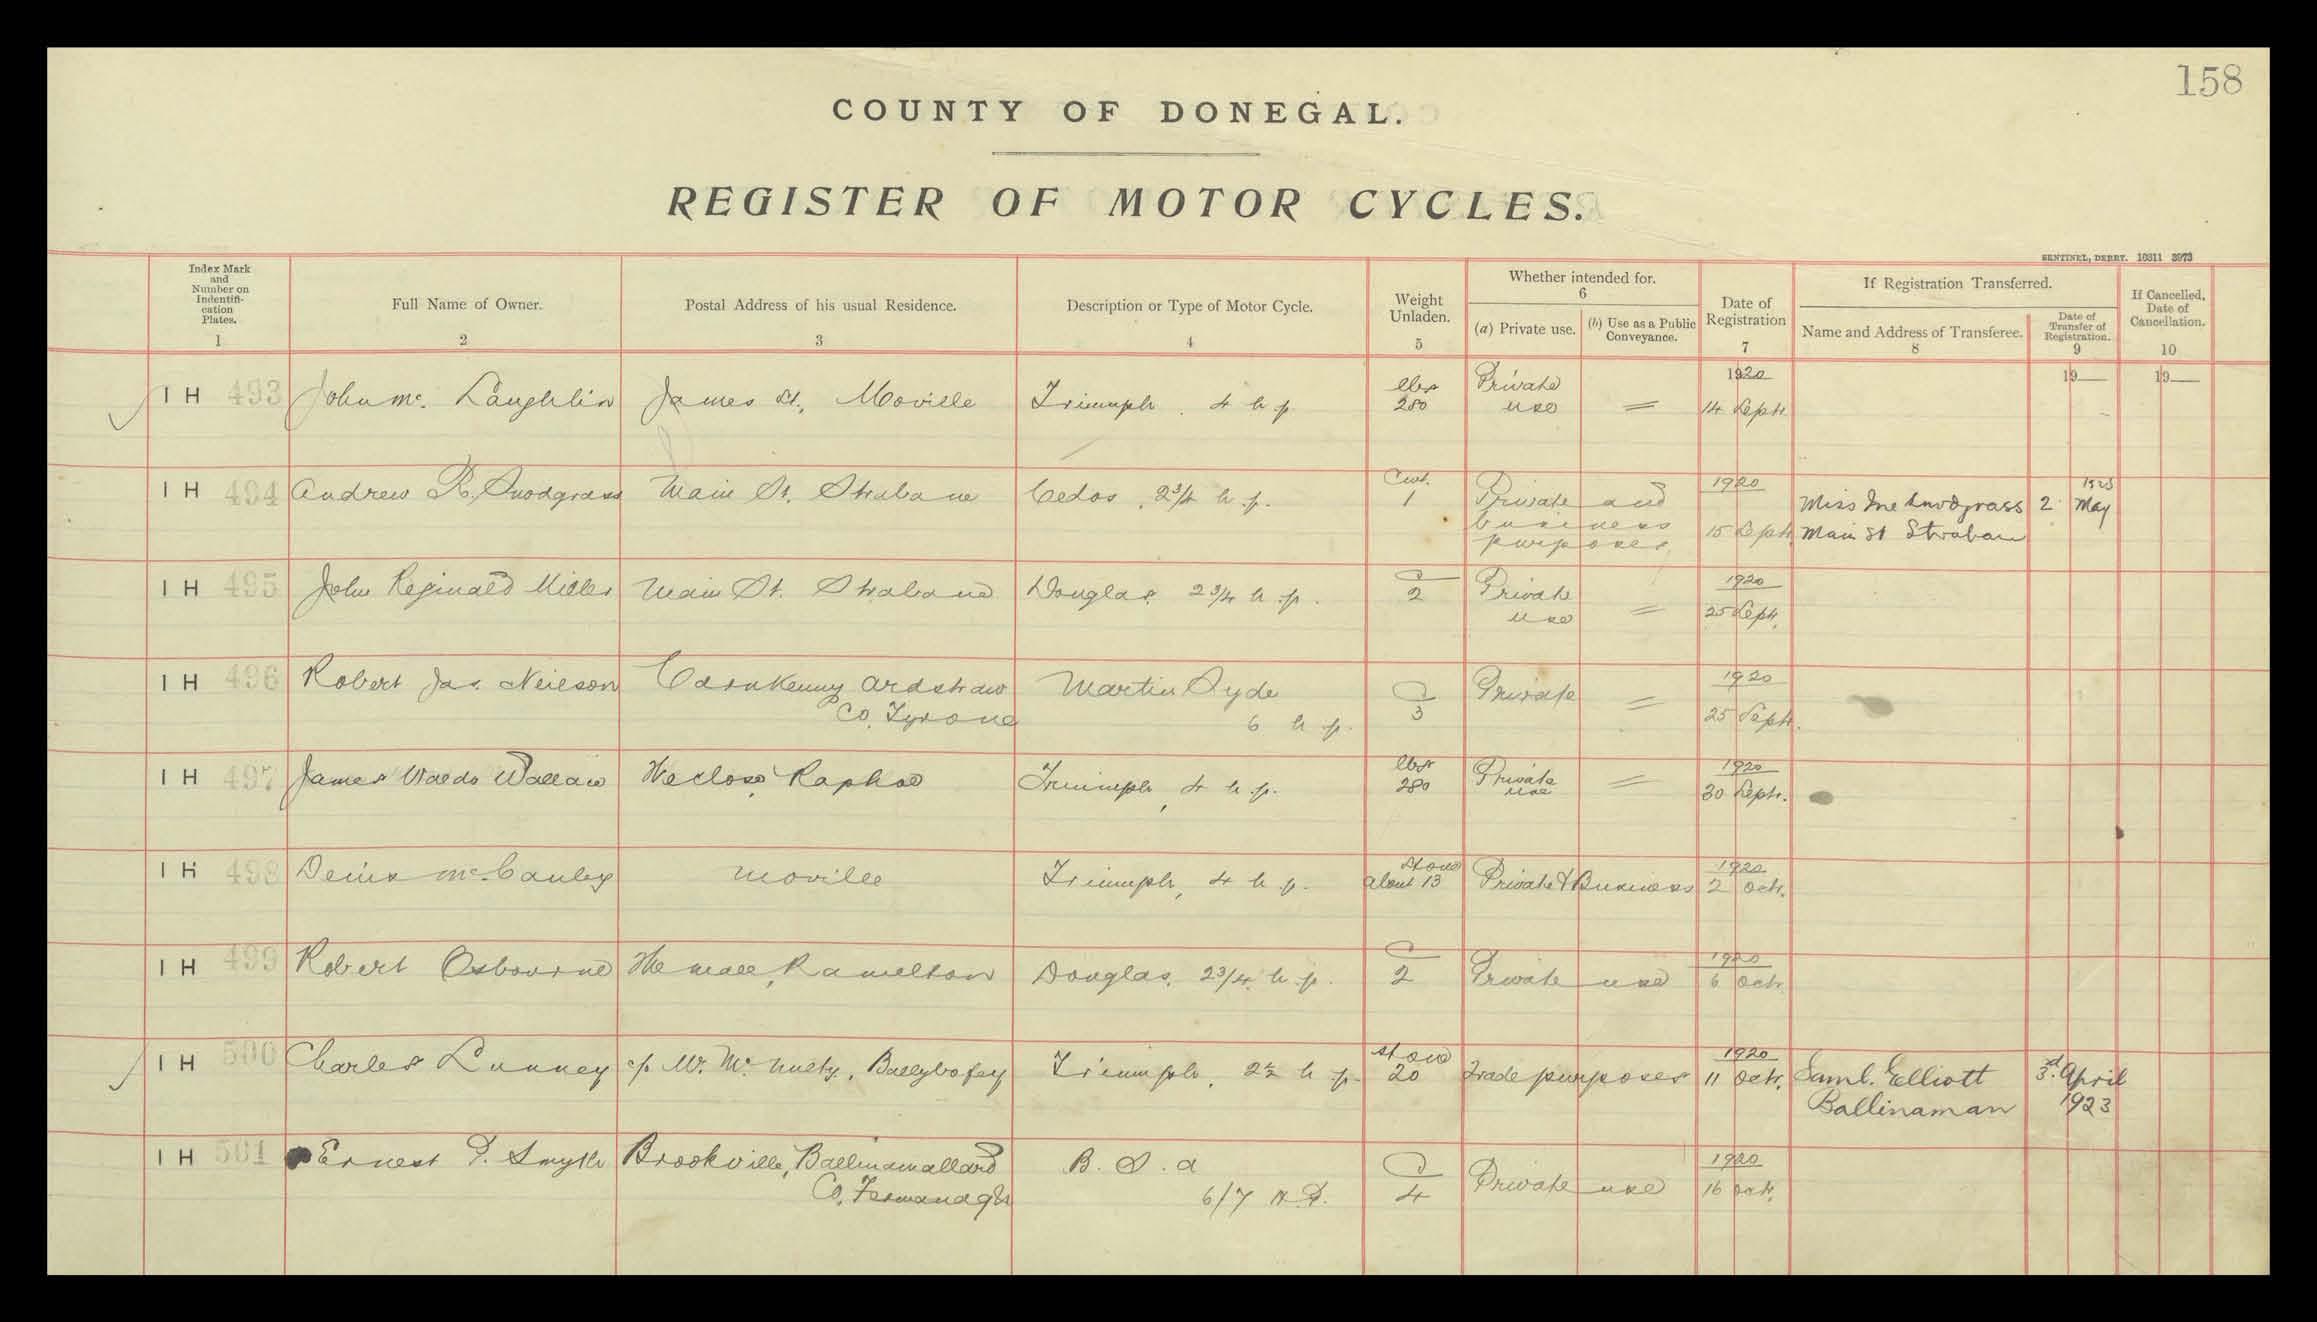 158
COUNTY OF DONEGAL.
REGISTER OF MOTOR CYCLES.
SENTINEL, DERRY. 10311 3973
Index Mark and Number on Indentifi-cation Plates. 1
Full Name of Owner. 2
Postal Address of his usual Residence. 3
Description or Type of Motor Cycle. 4
Weight Unladen. 5
Whether intended for. 6
(a) Private use.
(b) Use as a Public Conveyance.
Date of Registration 7
If Registration Transferred.
Name and Address of Transferee. 8
Date of Transfer of Registration. 9
If Cancelled, Date of Cancellation. 10
1920 19 19
IH 493 John Mc. Laughlin James St., Moville Triumph. 4 h.p. lbs 280 Private use = 14 Sept.
IH 494 Andrew R. Snodgrass Main St. Strabane Cedos, 2 3/4 h.p. Cwt. 1 Private and business purposes 1920 15 Sept. Miss Snodgrass Main St Strabane 2 May
IH 495 John Reginald Miller Main St. Strabane Douglas 2 3/4 h.p. 2 Private use = 1920 25 Sept.
IH 496 Robert Jas. Neilson Carnkenny Ardstraw Co. Tyrone Martin Syde 6 h.p. 3 Private = 1920 25 Sept.
IH 497 James Wallace Raphoe Triumph, 4 h.p. lbs 280 Private use = 1920 30 Sept.
IH 498 Denis McCauley Moville Triumph, 4 h.p. stone about 13 Private & Business 1920 2 Oct.
IH 499 Robert Osbourne The Mall, Ramelton Douglas, 2 3/4 h.p. 2 Private use 1920 6 Oct.
IH 500 Charles Lunney c/o Mr. McNulty, Ballybofey Triumph, 2 1/2 h.p. stone 20 Trade purposes 1920 11 Oct. Saml. Elliott Ballinaman 3rd. April 1923
IH 501 Ernest P. Smyth Brookville, Ballinamallard Co. Fermanagh B.S.A 6/7 H.P. 4 Private use 1920 16 Oct.